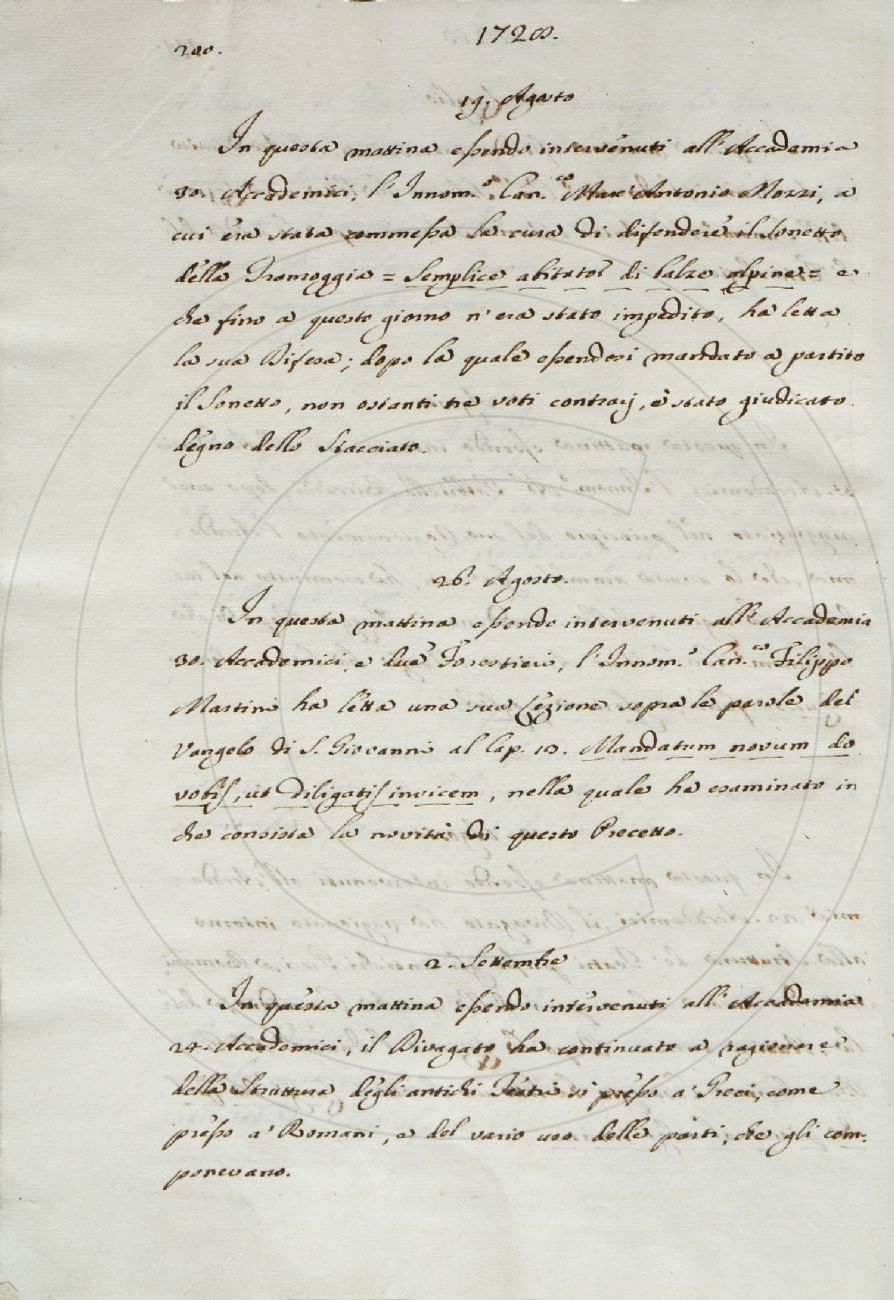 1728.
200.
19. Agosto
In questa mattina essendo intervenuti all'Accademia
30. Accademici, l'Innom.º Can.co Marc'Antonio Mozzi, a
cui era stata commessa la cura di difendere il sonetto
della Tramoggia = Semplice abitator di balze alpine = e
che fino a questo giorno n'era stato impedito, ha letta
la sua Difesa; dopo la quale essendosi mandato a partito
il Sonetto, non ostanti tre voti contrarj, è stato giudicato
degno dello Stacciato.
26. Agosto.
In questa mattina essendo intervenuti all'Accademia
30. Accademici, e due Forestieri, l'Innom.º Can.co Filippo
Martini ha letta una sua Lezione sopra le parole del
Vangelo di S. Giovanni al Cap. 13. Mandatum novum do
vobis, ut diligatis invicem, nella quale ha esaminato in
che consista la novità di questo Precetto.
2. Settembre
In questa mattina essendo intervenuti all'Accademia
24. Accademici, il Divagato ha continuato a ragionare
della Struttura degli antichi Teatri sì presso a' Greci, come
presso a' Romani, e del vario uso delle parti, che gli com-
ponevano.